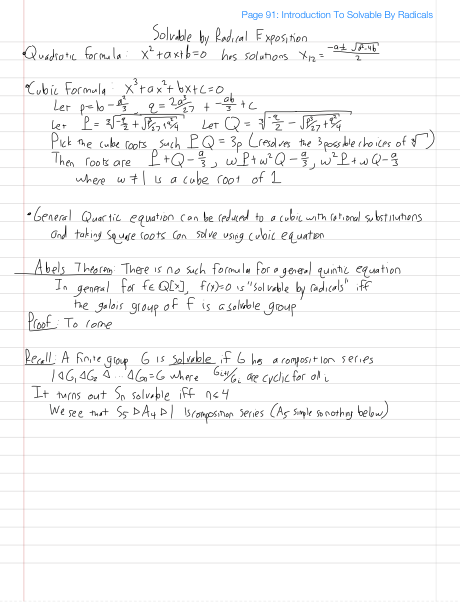 Page 91: Introduction To Solvable By Radicals
Solvable by Radical Exposition
• Quadratic formula: x²+ax+b=0 has solutions x₁₂ = (-a±√(a²-4b))/2
• Cubic Formula: x³+ax²+bx+c=0
Let p=b-a²/3, q=2a³/27 + -ab/3 + c
Let P = ∛(-q/2 + √(p³/27+q²/4)) Let Q = ∛(-q/2 - √(p³/27+q²/4))
Pick the cube roots such PQ = 3p (resolves the 3 possible choices of ∛)
Then roots are P+Q-a/3, ωP+ω²Q-a/3, ω²P+ωQ-a/3
where ω≠1 is a cube root of 1
• General Quartic equation can be reduced to a cubic with rational substitutions
and taking square roots can solve using cubic equation
Abels Theorem: There is no such formula for a general quintic equation
In general for f∈Q[x], f(x)=0 is "solvable by radicals" iff
the galois group of f is a solvable group
Proof: To come
Recall: A finite group G is solvable if G has a composition series
1◁G₁◁G₂◁...◁Gₙ=G where Gᵢ₊₁/Gᵢ are cyclic for all i
It turns out Sₙ solvable iff n≤4
We see that S₅▷A₄▷1 is composition series (A₅ simple so nothing below)